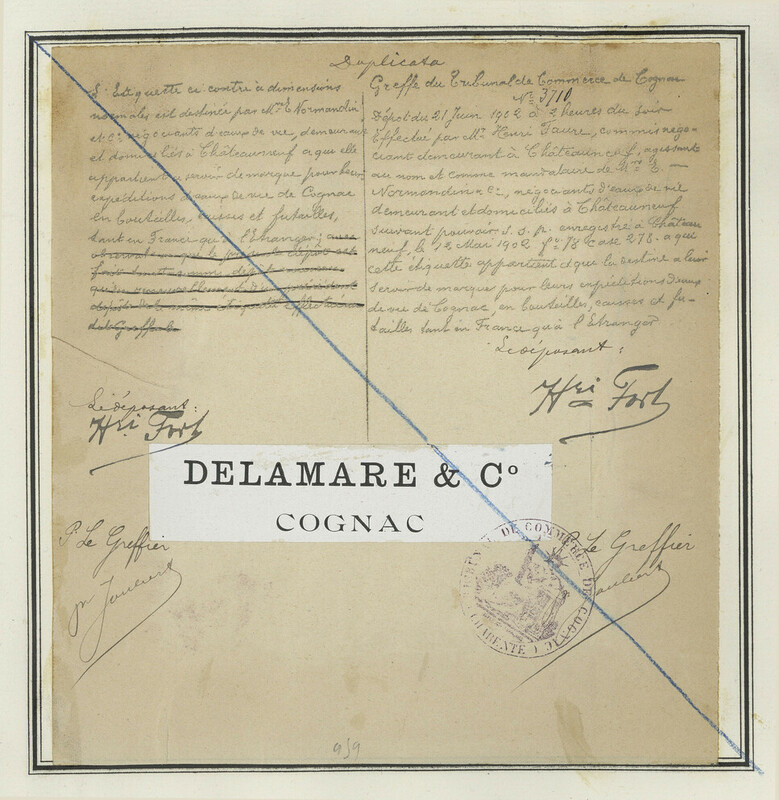 Duplicata
L'Etiquette ci contre à dimensions
normales est destinée par Mrs E. Normandin
et Cie négociants d'eaux de vie, demeurant
et domiciliés à Châteauneuf a que elle
appartient à servir de marque pour leurs
expéditions d'eaux de vie de Cognac
en bouteilles, caisses et futailles,
tant en France qu'à l'Etranger;
Le déposant:
Hri Fort
Greffe du Tribunal de Commerce de Cognac
No 3710
Dépôt du 21 Juin 1902 à 2 heures du soir
Effectué par Mr. Henri Faure, commis négo-
ciant demeurant à Châteauneuf, agissant
au nom et comme mandataire de Mrs E. —
Normandin & Cie, négociants d'eaux de vie
demeurant et domiciliés à Châteauneuf
suivant pouvoir s. s. p. enregistré à Château
neuf, le Mai 1902 fo 78 Case 278. a que
cette étiquette appartient et que la destine à leur
servir de marque pour leurs expéditions d'eaux
de vie de Cognac, en bouteilles, caisses et fu-
tailles tant en France qu'à l'Etranger
Le déposant:
Hri Fort
DELAMARE & Co
COGNAC
P. Le Greffier
P. Le Greffier
TRIBUNAL DE COMMERCE DE COGNAC
(CHARENTE)